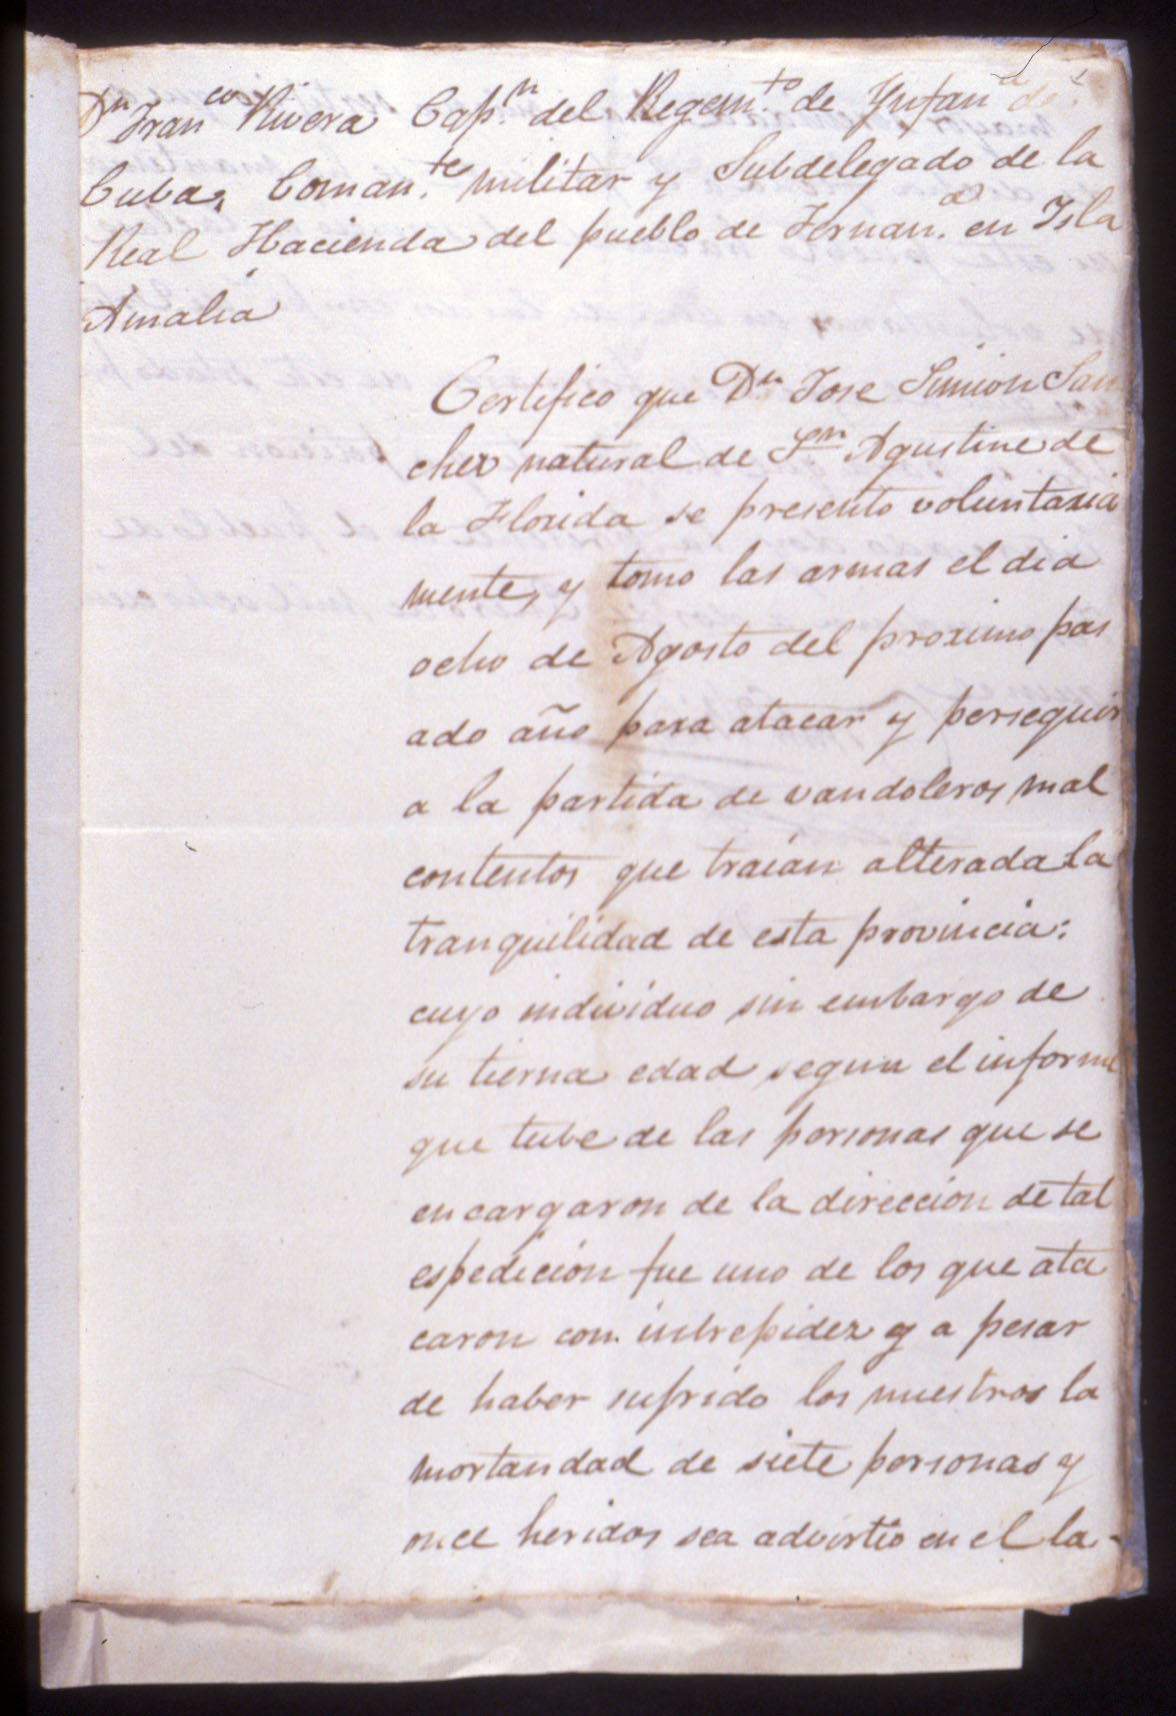 Dn Franco Rivera Capn. del Regemto. de Ynfana de
Cuba, Comante. militar y Subdelegado de la
Real Hacienda del pueblo de Fernando. en Isla
Amalia
Certifico que Dn Jose Simion San
chez natural de Sn Agustine de
la Florida se presento voluntaria
mente, y tomo las armas el dia
ocho de Agosto del proximo pas
ado año para atacar y perseguir
a la partida de vandoleros mal
contentos que traian alterada la
tranquilidad de esta provincia:
cuyo individuo sin embargo de
su tierna edad segun el informe
que tube de las personas que se
encargaron de la direccion de tal
espedicion fue uno de los que ata
caron con intrepidez y a pesar
de haber sufrido los nuestros la
mortandad de siete personas y
once heridos sea advirtio en el la-